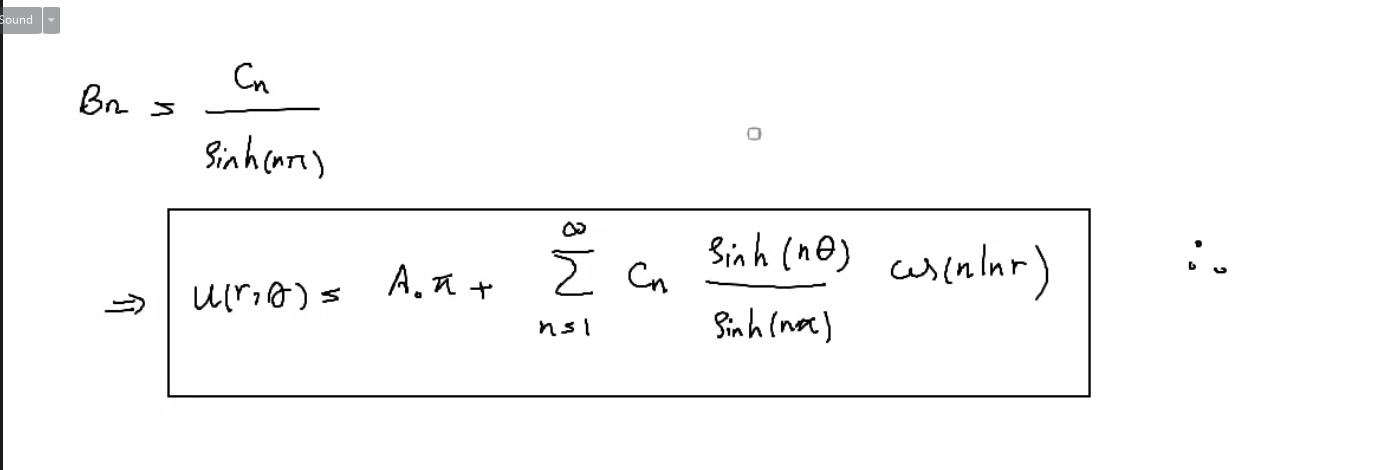 Sound
Bn = Cn / sinh(nπ)
⇒ u(r,θ) = A₀π + ∑_{n=1}^{∞} Cn sinh(nθ) / sinh(nπ) cos(n ln r) ∴